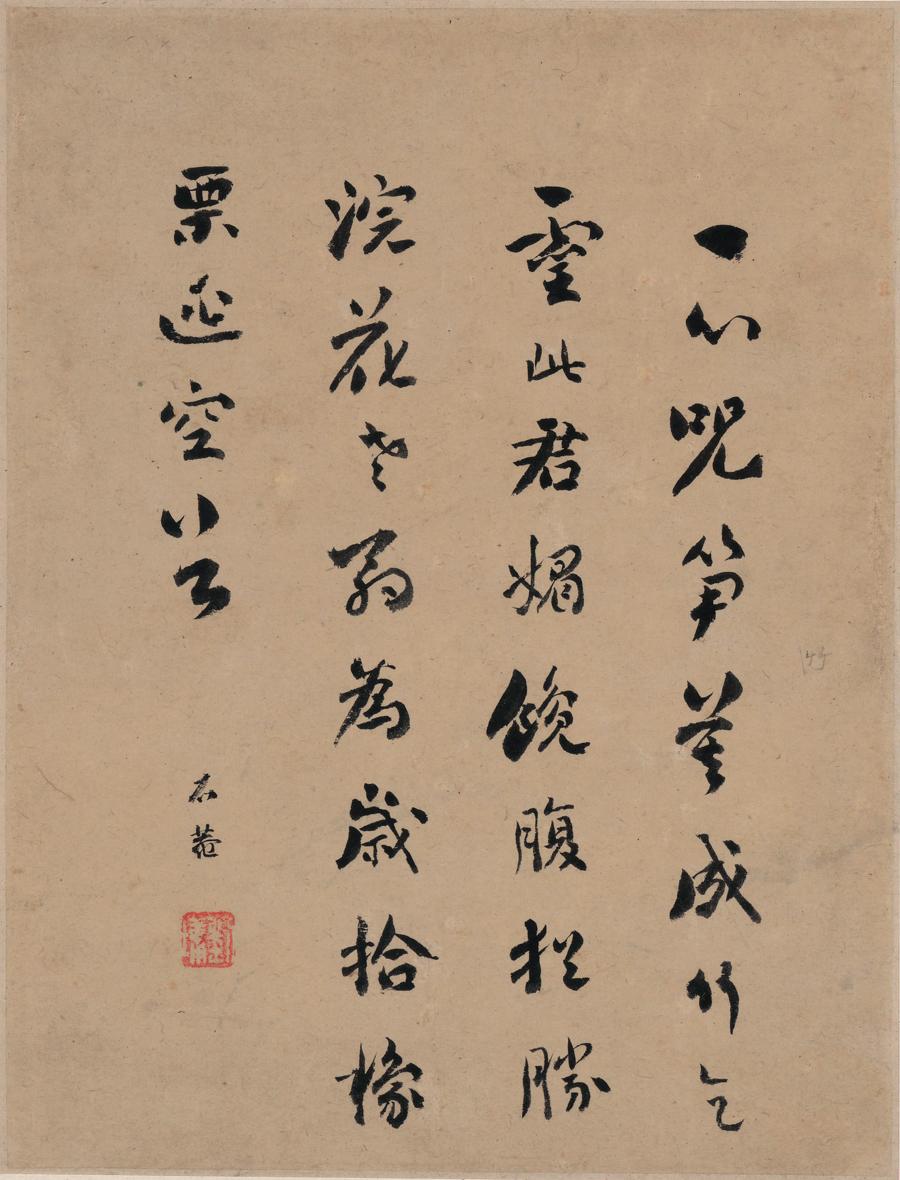 一心咒筍莫成竹乞
靈此君媚饞腹猶勝
浣花老翁為歲拾橡
栗逃空谷
石菴
竹